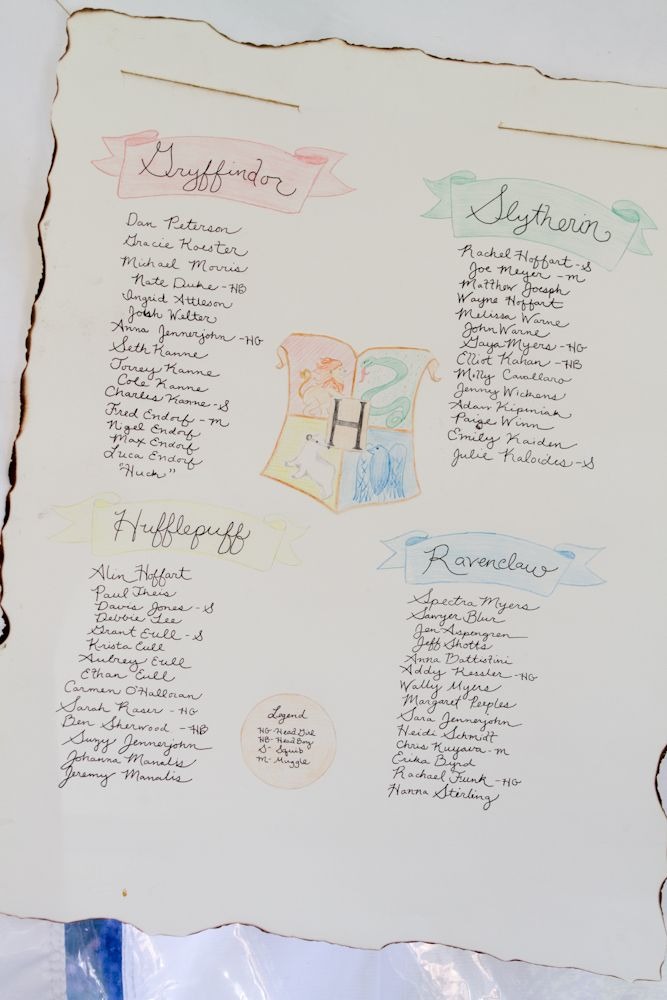 Gryffindor
Dan Peterson
Gracie Koester
Michael Morris
Nate Duke - HB
Ingrid Attleson
Josh Welter
Anna Jennerjohn - HG
Seth Kanne
Torrey Kanne
Cole Kanne
Charles Kanne - S
Fred Endorf - M
Nigel Endorf
Max Endorf
Luca Endorf
"Huck"
Slytherin
Rachel Hoffart - S
Joe Meyer - M
Matthew Joesph
Wayne Hoffart
Melissa Warne
John Warne
Gaya Myers - HG
Elliot Kahan - HB
Molly Cavallaro
Jenny Wickens
Adam Kipeniak
Paige Winn
Emily Kaiden
Julie Kaloides - S
H
Hufflepuff
Alin Hoffart
Paul Theis
Davis Jones - S
Debbie Lee
Grant Eull - S
Krista Eull
Aubrey Eull
Ethan Eull
Carmen O'Halloran
Sarah Raser - HG
Ben Sherwood - HB
Suzy Jennerjohn
Johanna Manalis
Jeremy Manalis
Ravenclaw
Spectra Myers
Sawyer Blur
Jen Aspengren
Jeff Shotts
Anna Battistini
Addy Kessler - HG
Wally Myers
Margaret Peeples
Sara Jennerjohn
Heidi Schmidt
Chris Kujava - M
Erika Byrd
Rachael Funk - HG
Hanna Stirling
Legend
HG - Head Girl
HB - Head Boy
S - Squib
M - Muggle